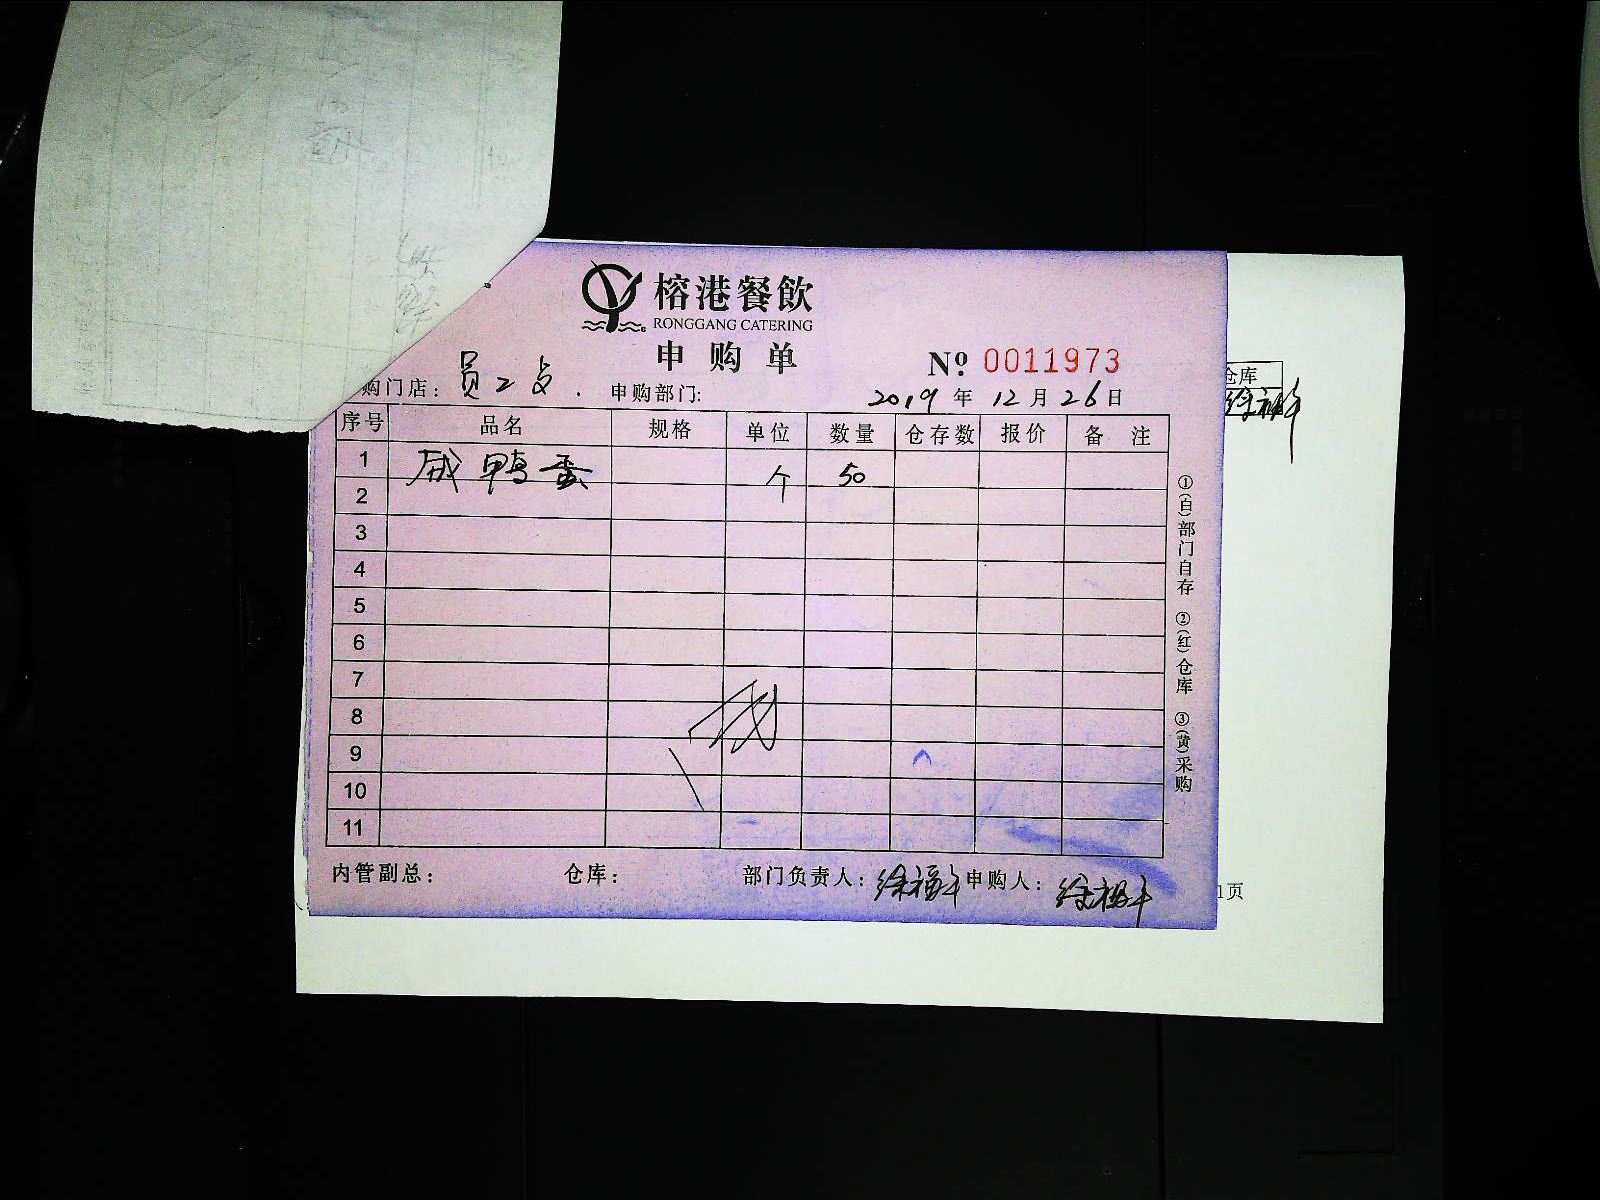 榕港餐飲
RONGGANG CATERING
申购单
№ 0011973
购门店: 员工 申购部门: 2019年12月26日
序号 品名 规格 单位 数量 仓存数 报价 备注
1 咸鸭蛋 个 50
2
3
4
5
6
7
8
9
10
11
内管副总: 仓库: 部门负责人: 徐福 申购人: 徐福
①(白)部门自存 ②(红)仓库 ③(黄)采购
仓库
1页